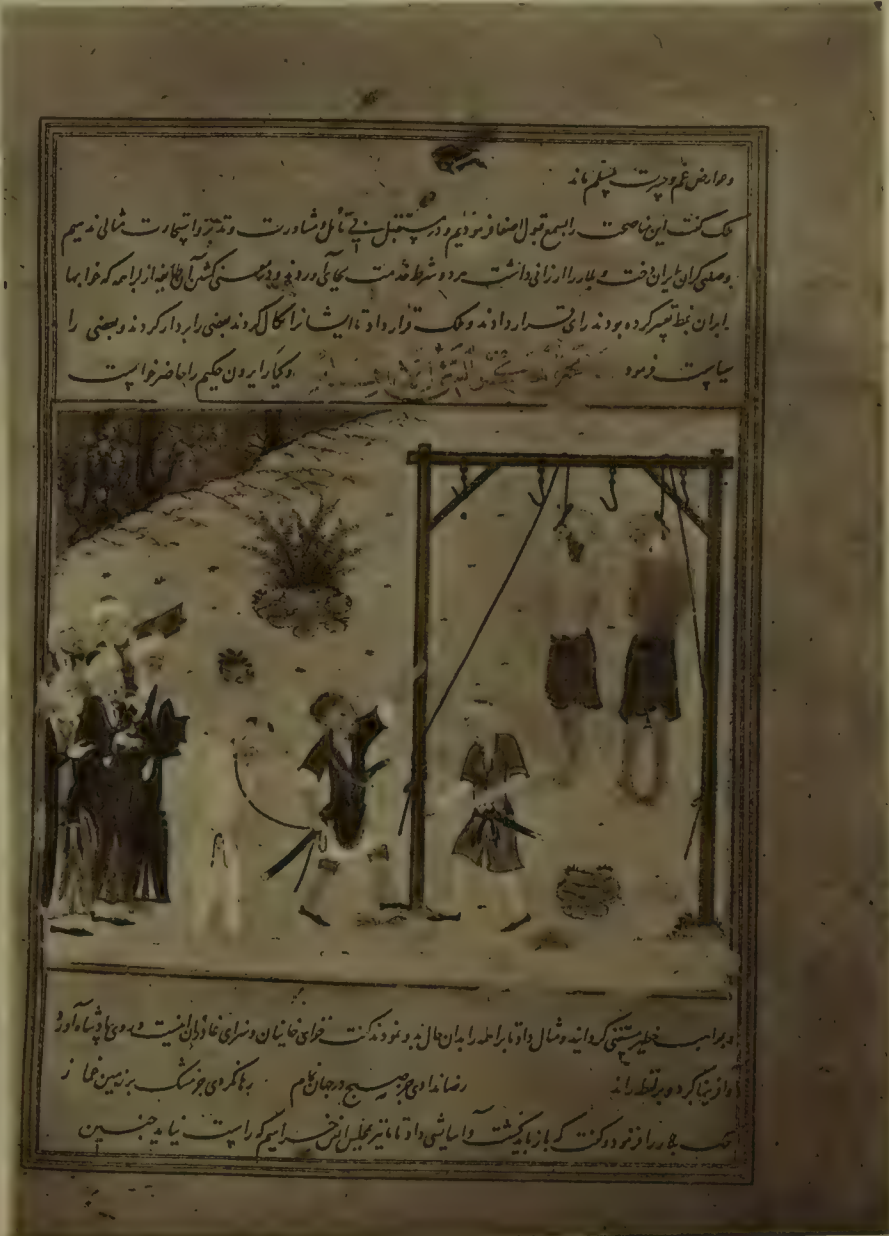 و عوارض غم و حیرت مسلم ماند
ملک گفت این مناصحت را بسمع قبول اصغا فرمودیم و در مستقبل بی تأمل و مشاورت و تدبر و استخارت مثالی ندهیم
و صلتی گران ایران دخت و بلار را ارزانی داشت هر دو شرط خدمت بجای آوردند و در معنی کشتن آن طایفه از براهمه که خوابها
بران نمط تعبیر کرده بودند رای قرار دادند و ملک قرار داد تا ایشانرا نکال کردند بعضی را بردار کردند و بعضی را
سیاست فرمود و کباریرون حکیم را حاضر خواست
و بمواهب خطیر مستغنی گردانید و مثال داد تا براهمه را بدان حال بدو نمودند گفت جزای خاینان و سزای غادران اینست و روی بپادشاه آورد
و آفرینها کرد و بر لفظ راند رضا ندادی جز صبح در جهان نمام رها نکردی جز مشک بر زمین غماز
ملک بلار را فرمود و گفت که باز باید گشت و آسایشی داد تا ما نیز بمجلس انس خرامیم که راست نیاید چنین